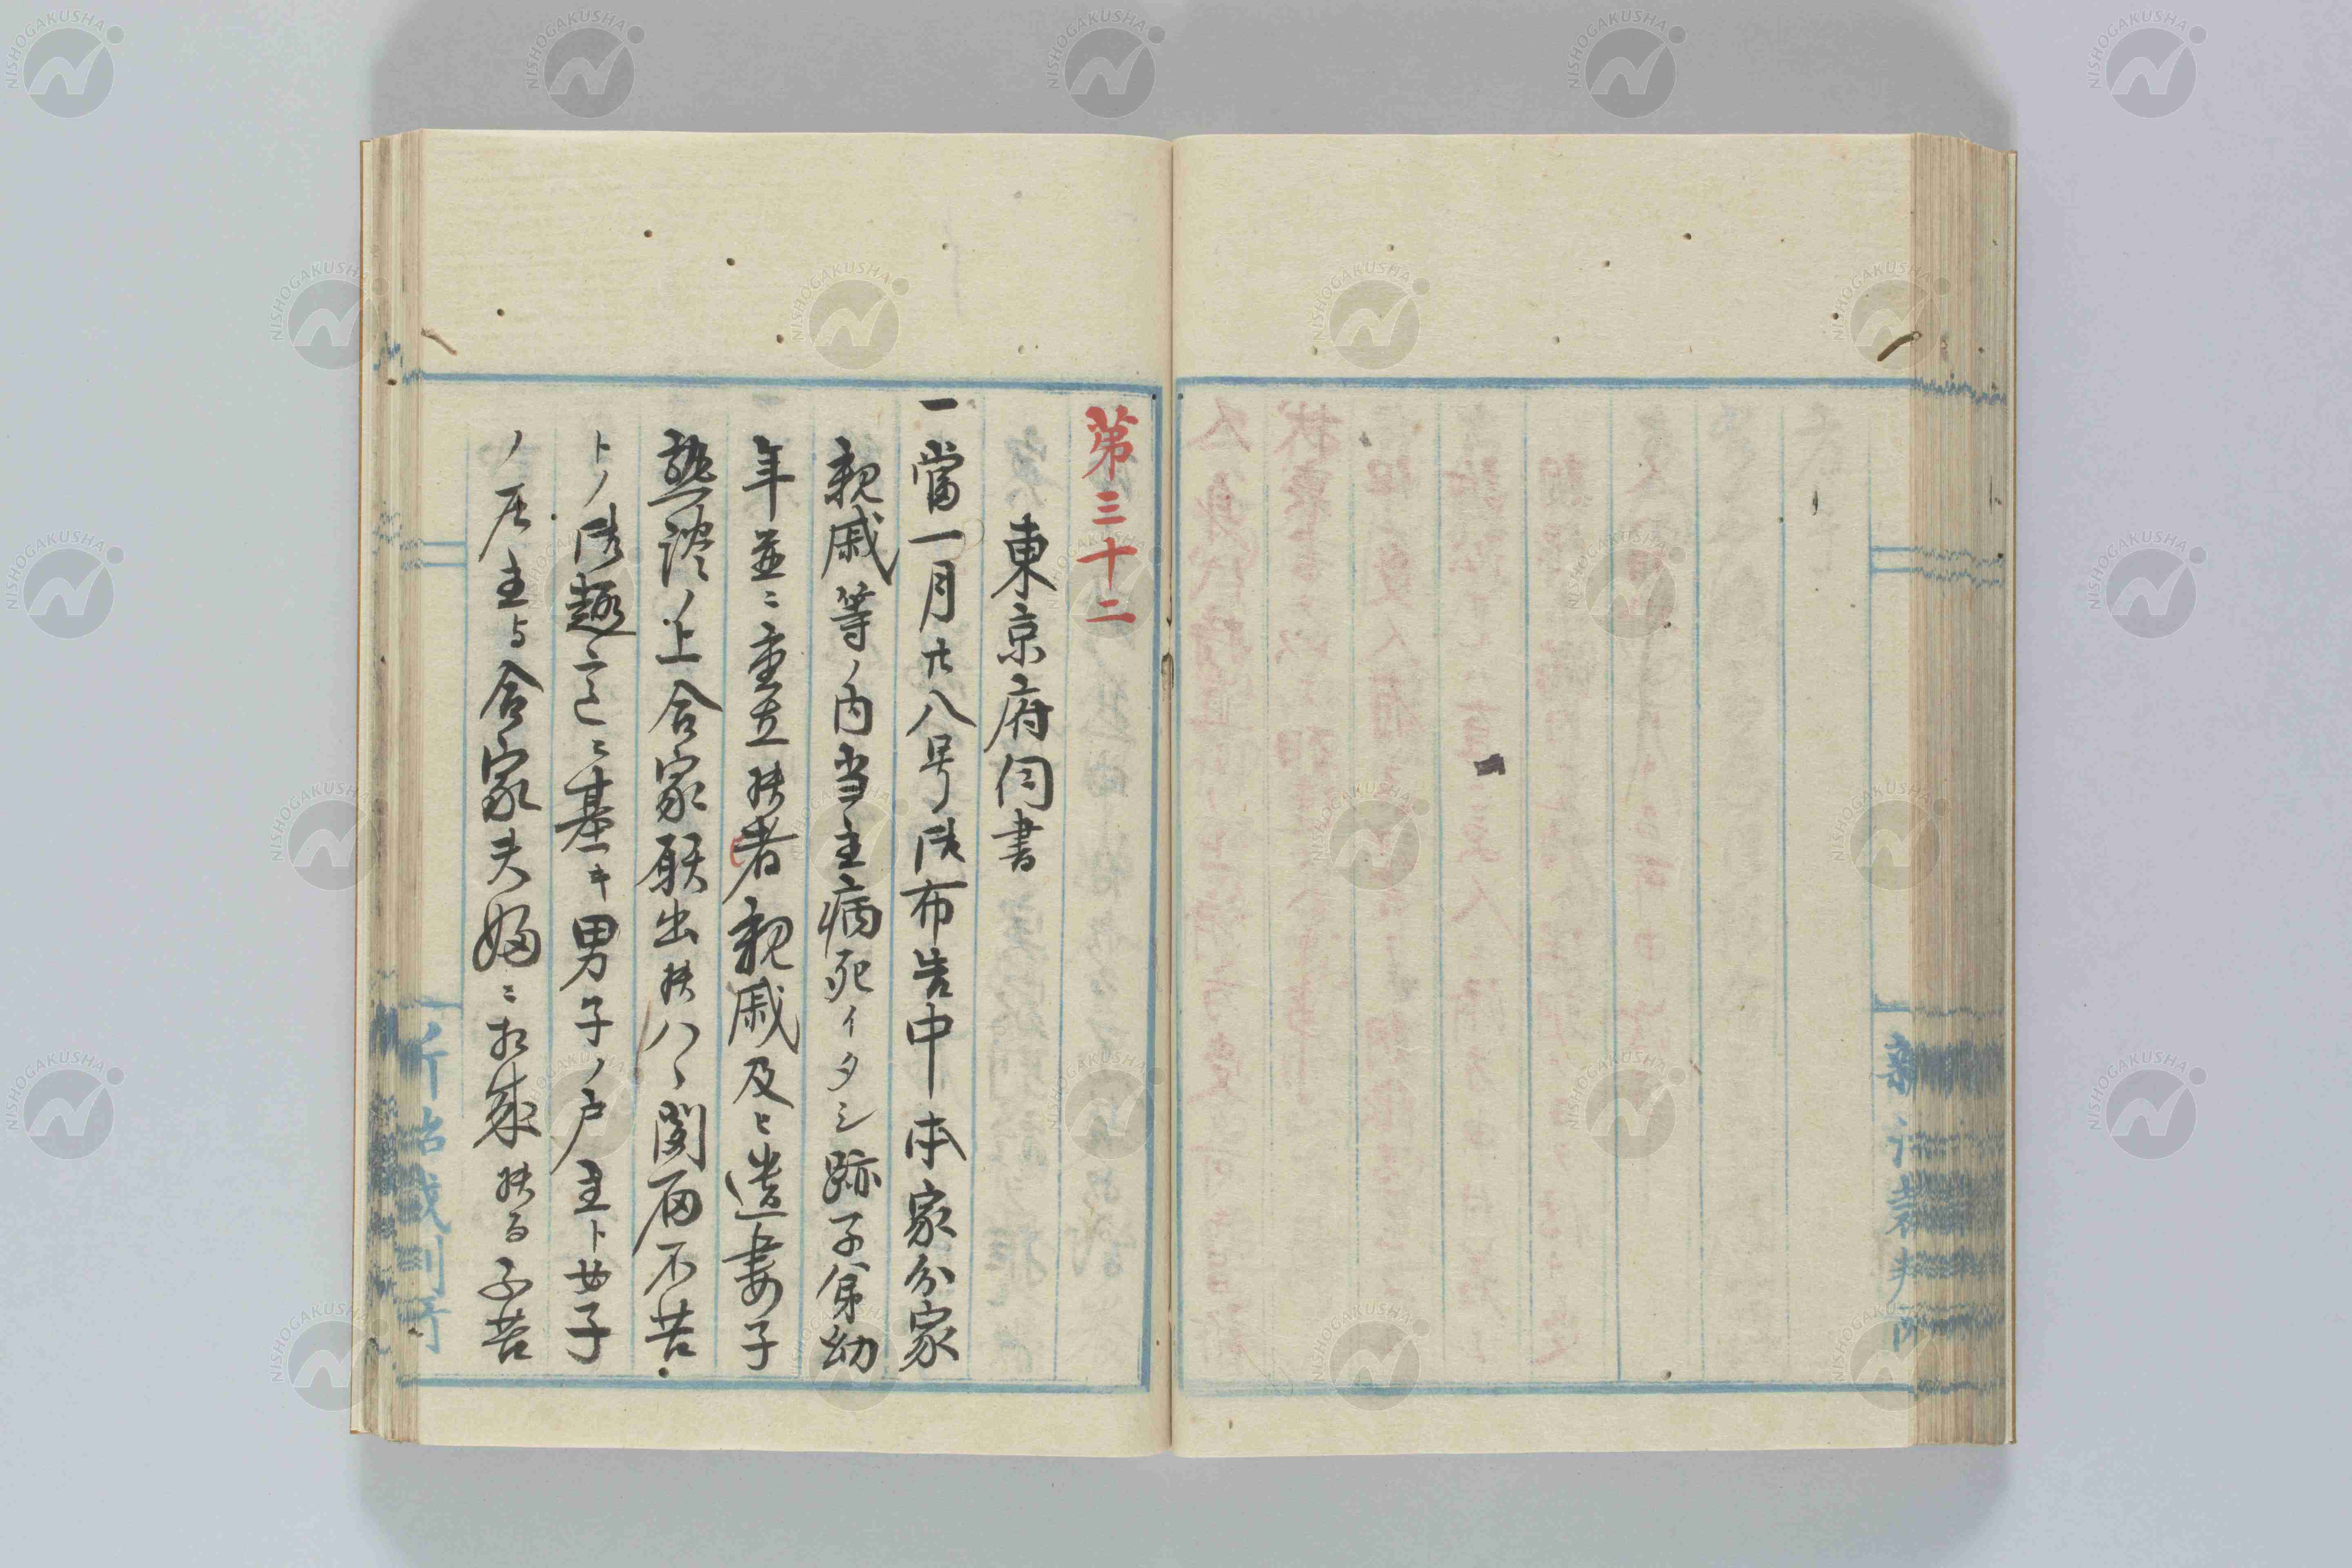 第三十二
東京府伺書
一當一月廿八号御布告中本家分家
親戚等ノ内当主病死イタシ跡子弟幼
年並ニ重立候者親戚及ヒ遺妻子
熟談ノ上合家願出候ハヽ聞届不苦
トノ御趣意ニ基キ男子ノ戸主ト女子
ノ戸主与合家夫婦ニ相成候而不苦
新治裁判所
NISHOGAKUSHA